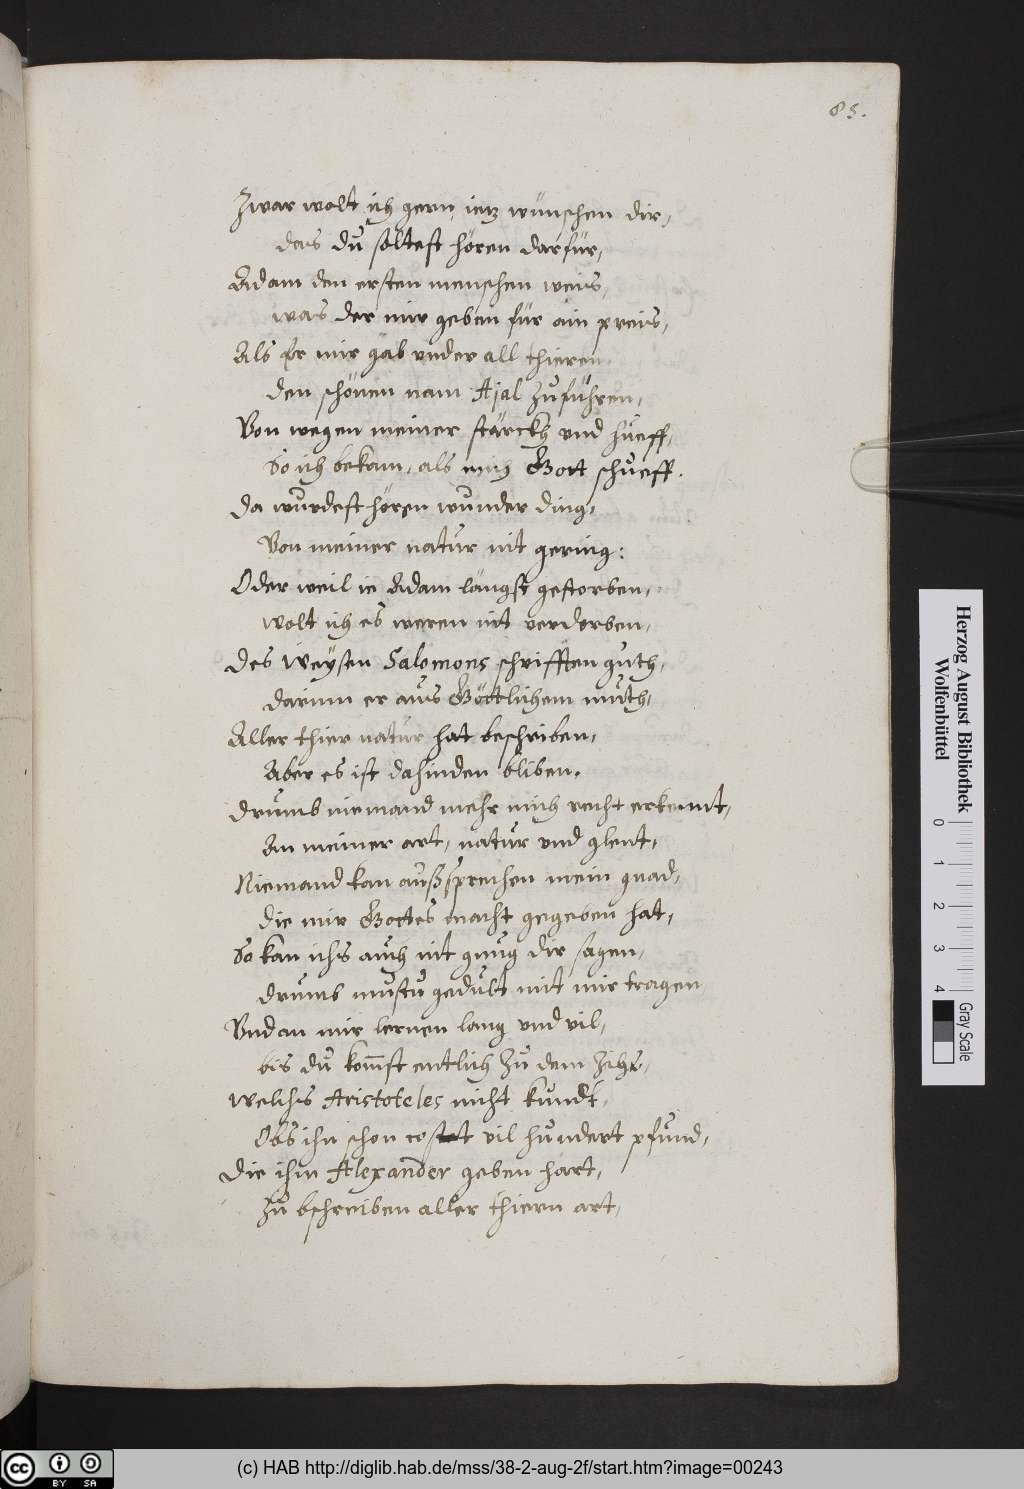 85.
Zwar wolt ich gern ietz wünschen dir,
das du soltest hören darfür,
Adam den ersten menschen weis,
was der mir geben für ain preis,
Als er mir gab under all thieren
den schönen nam Ajal zuführen,
Von wegen meiner stärckh und hüeff,
So ich bekam, als mich Gott schueff.
Da wurdest hören wunder ding,
Von meiner natur nit gering:
Oder weil ie Adam längst gestorben,
wolt ich es weren nit verdorben,
des Weysen Salomons schrifften guth,
darinn er aus Göttlichem muth,
Aller thier natur hat beschriben,
Aber es ist dahinden bliben.
drumb niemand mehr mich recht erkennt,
An meiner art, natur und glent,
Niemand kan außsprechen mein gnad,
die mir Gottes macht gegeben hat,
So kan ichs auch nit gnug dir sagen,
drumb mustu gedult mit mir tragen
Und an mir lernen lang und vil,
bis du kom̅st entlich zu dem
welchs Aristoteles nicht kundt,
Obs ihn schon costet vil hundert pfund,
die ihm Alexander geben hart,
zu bschreiben aller thiern art,
Herzog August Bibliothek
Wolfenbüttel
0 1 2 3 4
Gray Scale
cc BY SA
(c) HAB http://diglib.hab.de/mss/38-2-aug-2f/start.htm?image=00243